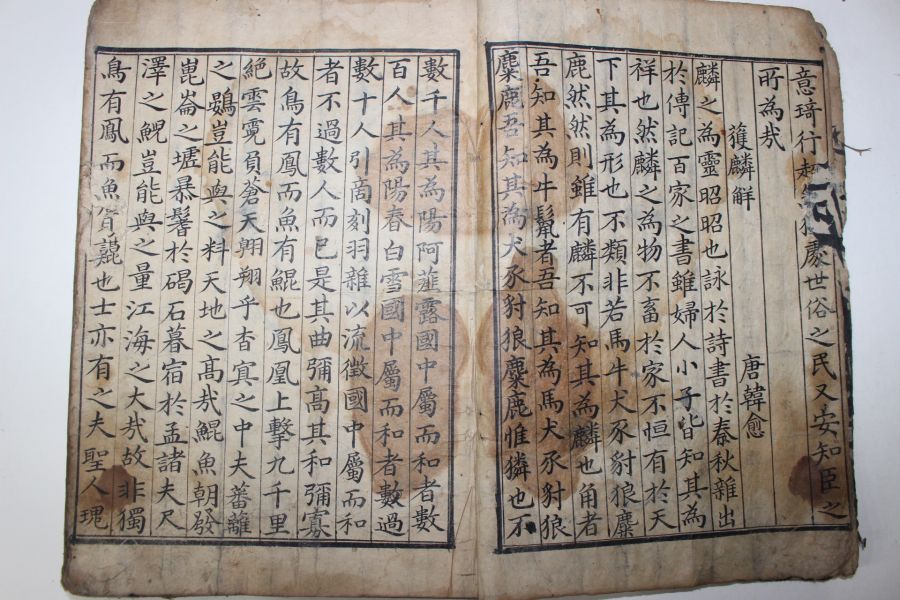 意琦行超處世俗之民又安知臣之
所為㦲
獲麟觧 唐韓愈
麟之為靈昭昭也詠於詩書於春秋雜出
於傳記百家之書雖婦人小子皆知其為
祥也然麟之為物不畜於家不恒有於天
下其為形也不類非若馬牛犬豕豺狼麋
鹿然然則雖有麟不可知其為麟也角者
吾知其為牛鬣者吾知其為馬犬豕豺狼
麋鹿吾知其為犬豕豺狼麋鹿惟獜也不
數千人其為陽阿薤露國中屬而和者數
百人其為陽春白雪國中屬而和者數過
數十人引商刻羽雜以流徵國中屬而和
者不過數人而已是其曲彌髙其和彌寡
故鳥有鳳而魚有鯤也鳳凰上擊九千里
絶雲霓負蒼天翱翔乎杳冥之中夫蕃籬
之鷃豈能與之料天地之髙㦲鯤魚朝發
崑崙之墟暴鬐於碣石暮宿於孟諸夫尺
澤之鯢豈能與之量江海之大㦲故非獨
鳥有鳳而魚有鯤也士亦有之夫聖人瑰